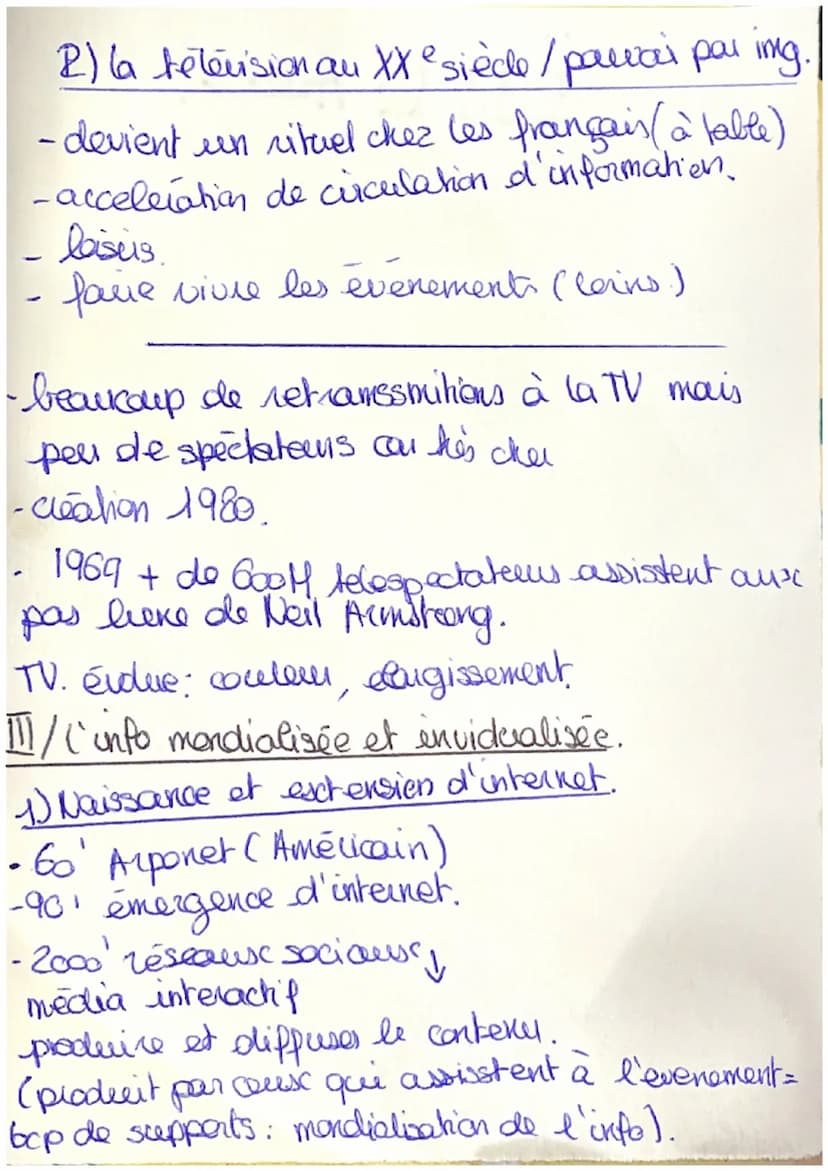 2) la télévision au XXe siècle / pouvoir par img.
- devient un rituel chez les français (à table)
- acceleration de circulation d'information.
- loisirs.
- faire vivre les évènements (loins)
- beaucoup de retranssmitions à la TV mais
peu de spectateurs car très cher
- création 1980.
- 1969 + de 600M telespectateurs assistent aux
pas livre de Neil Armstrong.
TV. évolue : couleur, élargissement.
III / l'info mondialisée et invidualisée.
1) Naissance et extension d'internet.
- 60' Arponet (Américain)
- 90' émergence d'internet.
- 2000' réseaux sociaux ↓
média interactif
produire et diffuser le contenu.
(produit par ceux qui assistent à l'evenement =
bcp de supports : mondialisation de l'info).